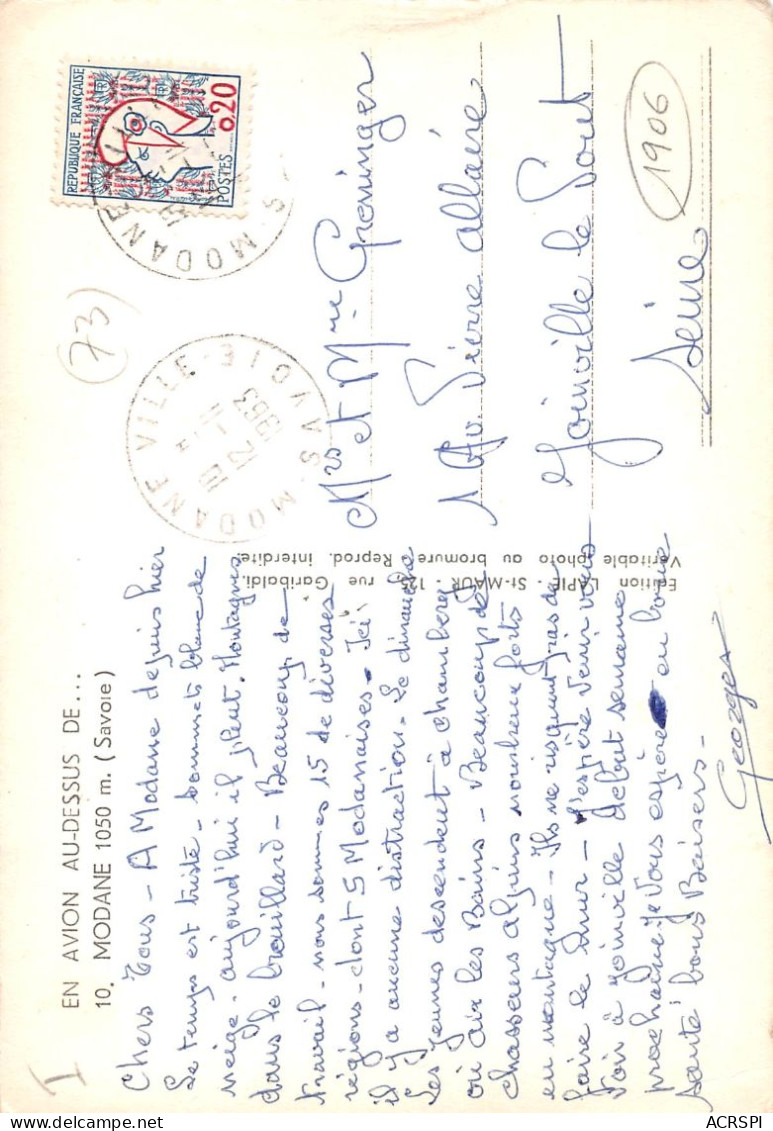 EN AVION AU-DESSUS DE...
10. MODANE 1050 m. (Savoie)
I
Chers Tous - A Modane depuis hier
Le temps est triste - sommets blancs de
neige. aujourd'hui il pleut. Montagnes
dans le brouillard - Beaucoup de
travail - nous sommes 15 de diverses
régions - dont 5 Modanaises - Ici
il y a aucune distraction. Le dimanche
Les jeunes descendent à Chambery
ou aix les Bains - Beaucoup de
chasseurs alpins nombreux forts
en montagne - Ils ne risquent pas de
faire le mur - J'espère venir vous
voir à Joinville debut semaine
prochaine. Je vous espère en bonne
santé bons Baisers -
Georges
Edition LAPIE - St-MAUR - 125, rue Garibaldi.
Véritable photo au bromure. Reprod. interdite.
(73)
REPUBLIQUE FRANÇAISE
0,20
POSTES
MODANE
MODANE VILLE
SAVOIE
1963
Mrs et Mme Groninger
1 Av. Pierre allaire
Joinville le Pont
Seine
1906
delcampe.net
ACRSPI